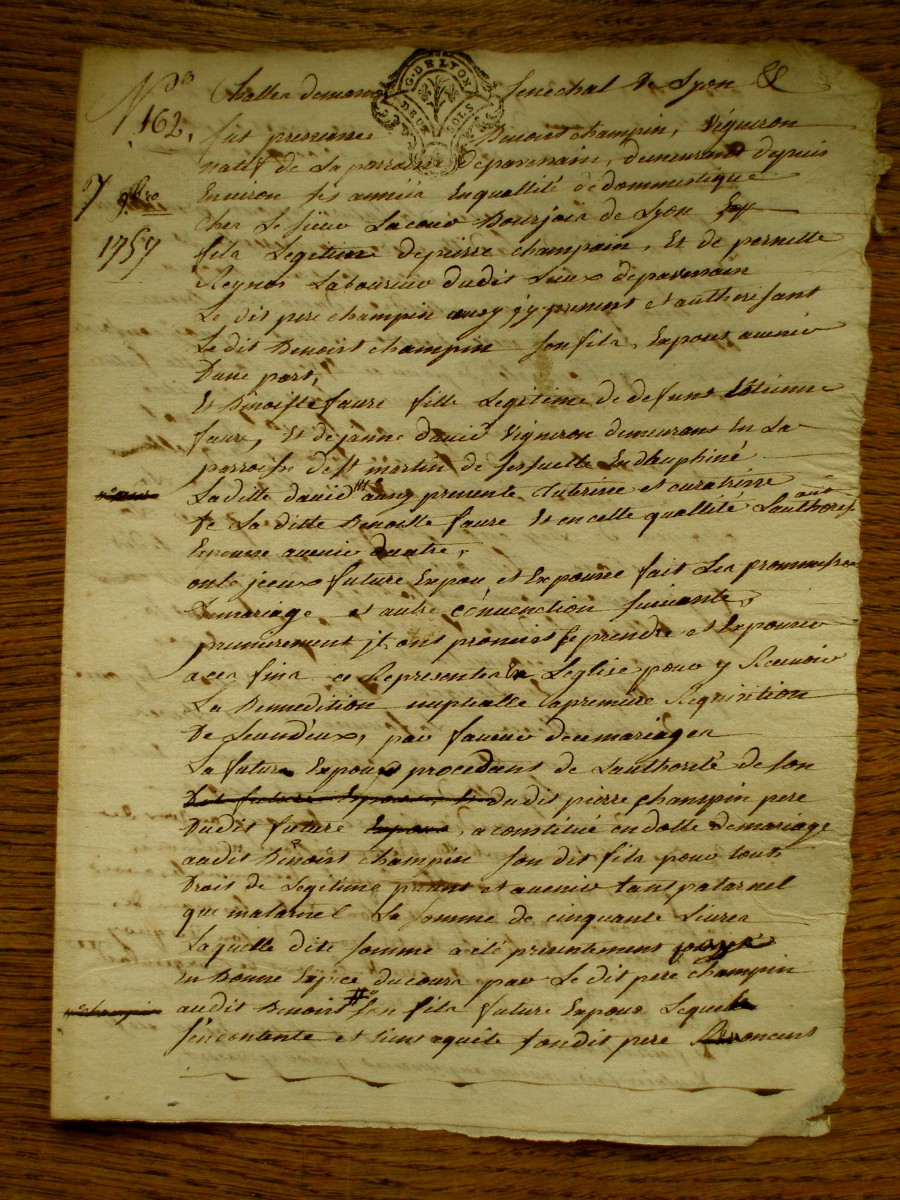 N.o
162.
7
9bre
1757
G. DE LYON
DEUX SOLS
Senechal De Lyon &
fut presence Benoist champin, Vigneron
natif de La parroisse deparemain, demeurant depuis
Environ six années Enquallité dedommestique
Chez Le sieur Bourjois de Lyon
fils Legitime depierre champain, Et de pernette
Reynos Laboureur dudit Lieux deparemain
Le dit pere champin aussy jy present et authorisant
Ledit Benoist champin Son fils, Expoux avenir
Dune part,
Et Benoiste faure fille Legitime de defunt Etienne
faure, Et dejanne david Vigneron demeurans En La
parroisse de st martin de Enduphiné
La ditte david aussy presente tutrisse et curatrisse
de La ditte Benoitte faure Et encelle quallité Lauthorisant
Expouse avenir dautre,
onts jceux future Expou et Expousee fait Les prommesses
Demariage et autre convenction suivante,
premierement jls ont promis se prendre et Expouser
a ces fins ce Representer En Leglise pour y Recevoir
La Bennedition nuptialle apremiere Requisition
De Leundeux, par faveur decemariages
La future Expoux procedant de Lauthorité de son
dudit pierre champin pere
Dudit future , a constitué en dotte demariage
audit Benoist champin son dit fils pour touts
Droit de Legitime present et avenir tant patarnel
que matarnel La somme de cinquante Livres
Laquelle dite somme a été presentement payé
En Bonne Espice ducours par Le dit pere champin
audit Benoist son fils future Expoux Lequel
sencontente et tiens quite sondit pere